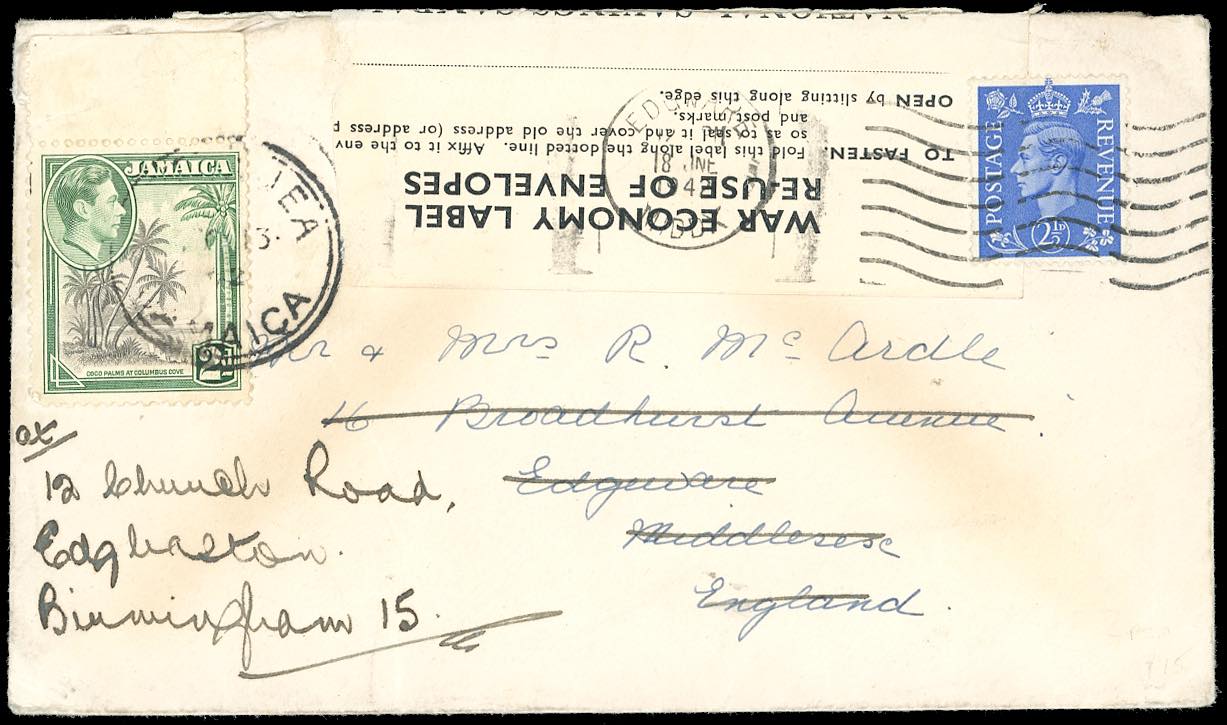 NATIONAL SAVINGS
OPEN by slitting along this edge.
and post marks.
so as to seal it and cover the old address (or address p
TO FASTEN. Fold this label along the dotted line. Affix it to the env
RE-USE OF ENVELOPES
WAR ECONOMY LABEL
EDGWARE
18 JNE
POSTAGE
REVENUE
2½D
JAMAICA
COCO PALMS AT COLUMBUS COVE
2D
JAMAICA
Mr & Mrs R Mc Ardle
16 Broadhurst Avenue
Edgware
Middlesex
England.
at
12 Church Road,
Edgbaston.
Birmingham 15.